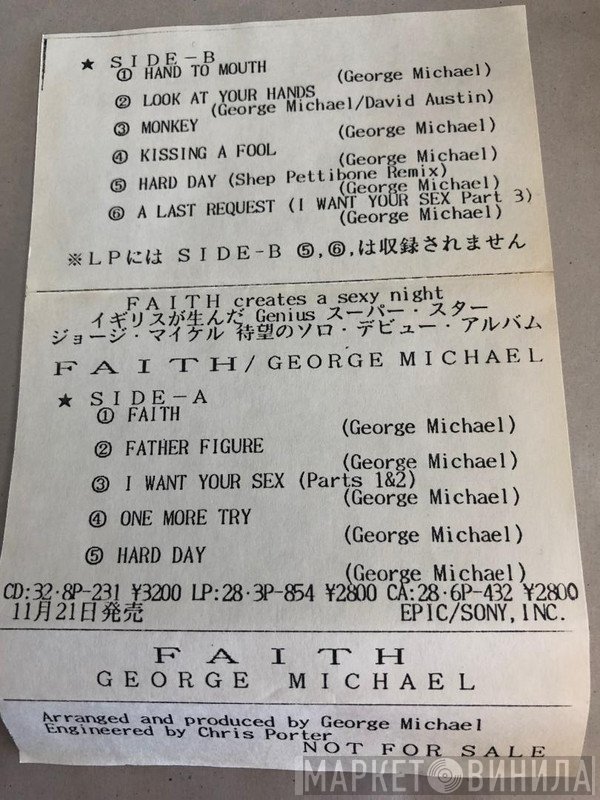 ★ SIDE-B
① HAND TO MOUTH
(George Michael)
② LOOK AT YOUR HANDS
(George Michael/David Austin)
③ MONKEY
(George Michael)
④ KISSING A FOOL
(George Michael)
⑤ HARD DAY (Shep Pettibone Remix)
(George Michael)
⑥ A LAST REQUEST (I WANT YOUR SEX Part 3)
(George Michael)
※LPには SIDE-B ⑤,⑥,は収録されません
FAITH creates a sexy night
イギリスが生んだ Genius スーパー・スター
ジョージ・マイケル 待望のソロ・デビュー・アルバム
FAITH/GEORGE MICHAEL
★ SIDE-A
① FAITH
(George Michael)
② FATHER FIGURE
(George Michael)
③ I WANT YOUR SEX (Parts 1&2)
(George Michael)
④ ONE MORE TRY
(George Michael)
⑤ HARD DAY
(George Michael)
CD:32・8P-231 ¥3200 LP:28・3P-854 ¥2800 CA:28・6P-432 ¥2800
11月21日発売 EPIC/SONY,INC.
FAITH
GEORGE MICHAEL
Arranged and produced by George Michael
Engineered by Chris Porter
NOT FOR SALE
МАРКЕТ ВИНИЛА